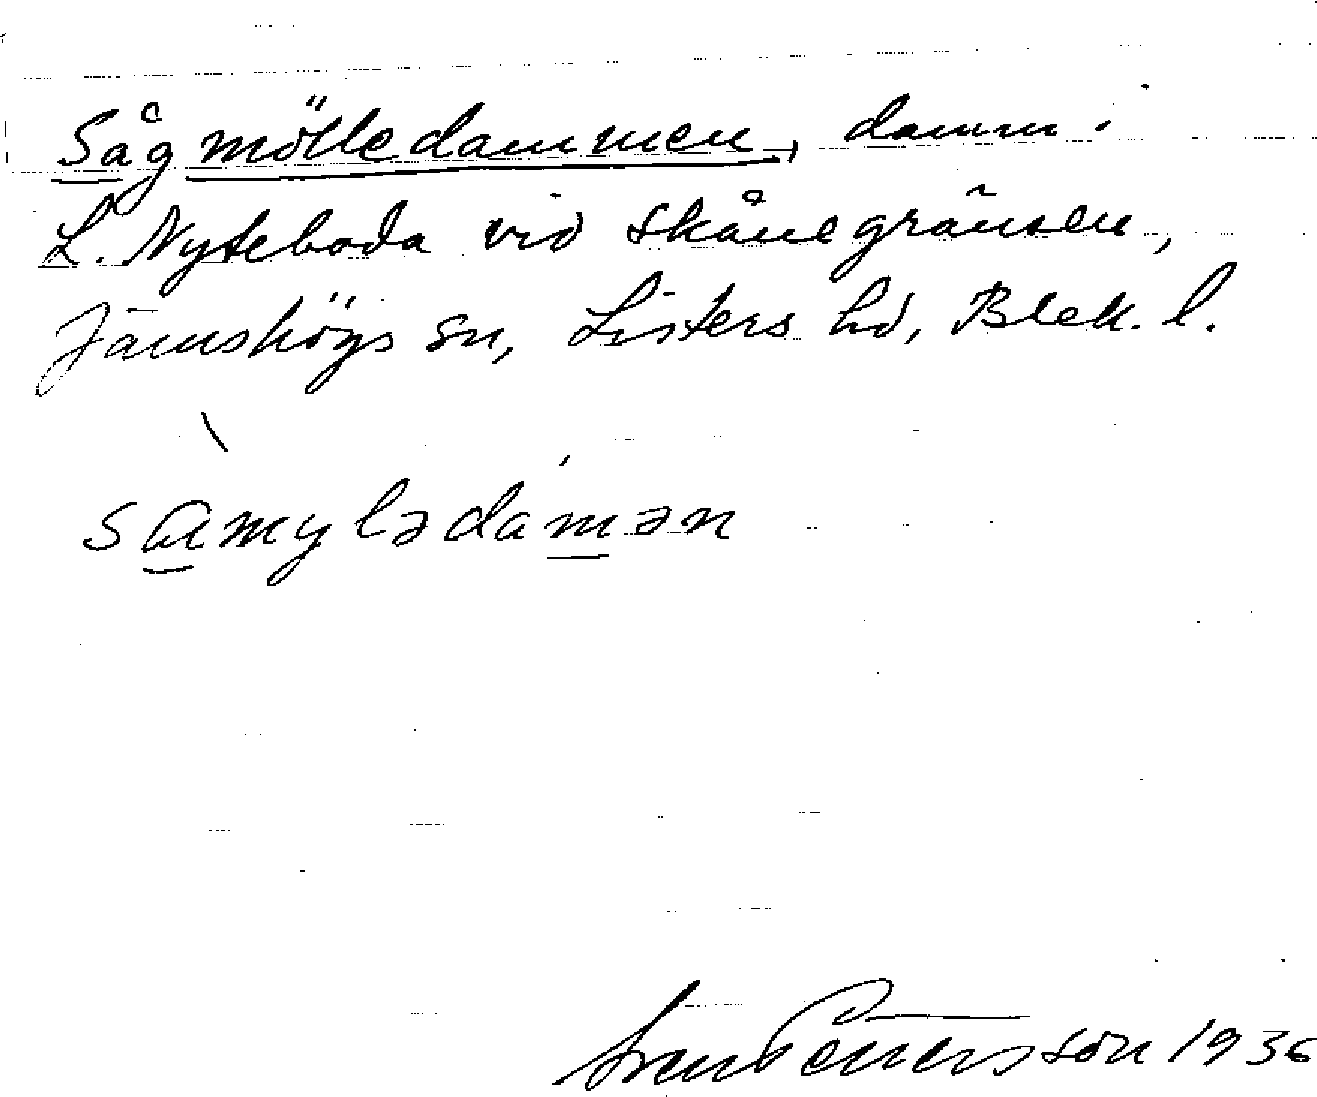 Sågmölledammen, damm i
L. Nyteboda vid Skånegränsen,
Jämshögs sn, Listers hd, Blek. l.
sɑmylədámən
Sven Pettersson 1936